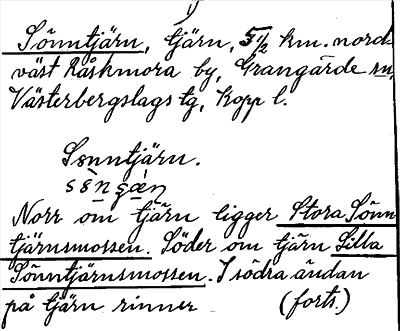 Sönntjärn, tjärn, 5 1/2 km. nord-
väst Råskmora by, Grangärde sn,
Västerbergslags tg, Kopp l.
Sønntjärn.
Norr om tjärn ligger Stora Sönn
tjärnsmossen. Söder om tjärn Lilla
Sönntjärnsmossen. I södra ändan
på tjärn rinner (forts.)